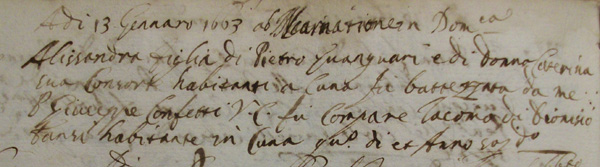 Adi 13 Gennaro 1603 ab Incarnatione in Dom.ca
Alissandra figlia di Pietro Guanguari e di donna Caterina
sua Consorte habitanti a Cuna fu battezzata da me
P. Giuseppe Confetti V. C. fu Compare Iacomo di Dionisio
habitante in Cuna di et Anno so.do